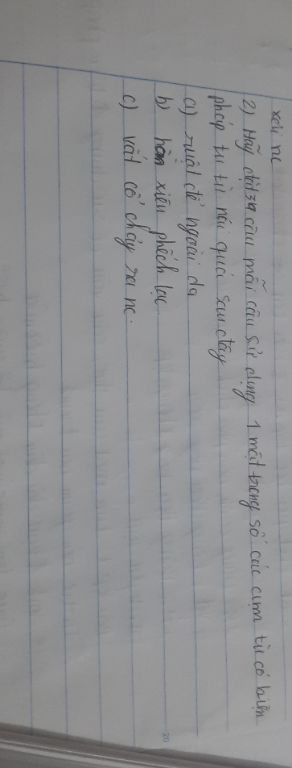 xấu nc
2) Hãy đặt 3 câu mỗi câu sử dụng 1 một trong số các cụm từ có biện
pháp tu từ nói quá sau đây
a) ruột để ngoài da
b) hồn xiêu phách lạc
c) vắt cổ chày ra nc.
20